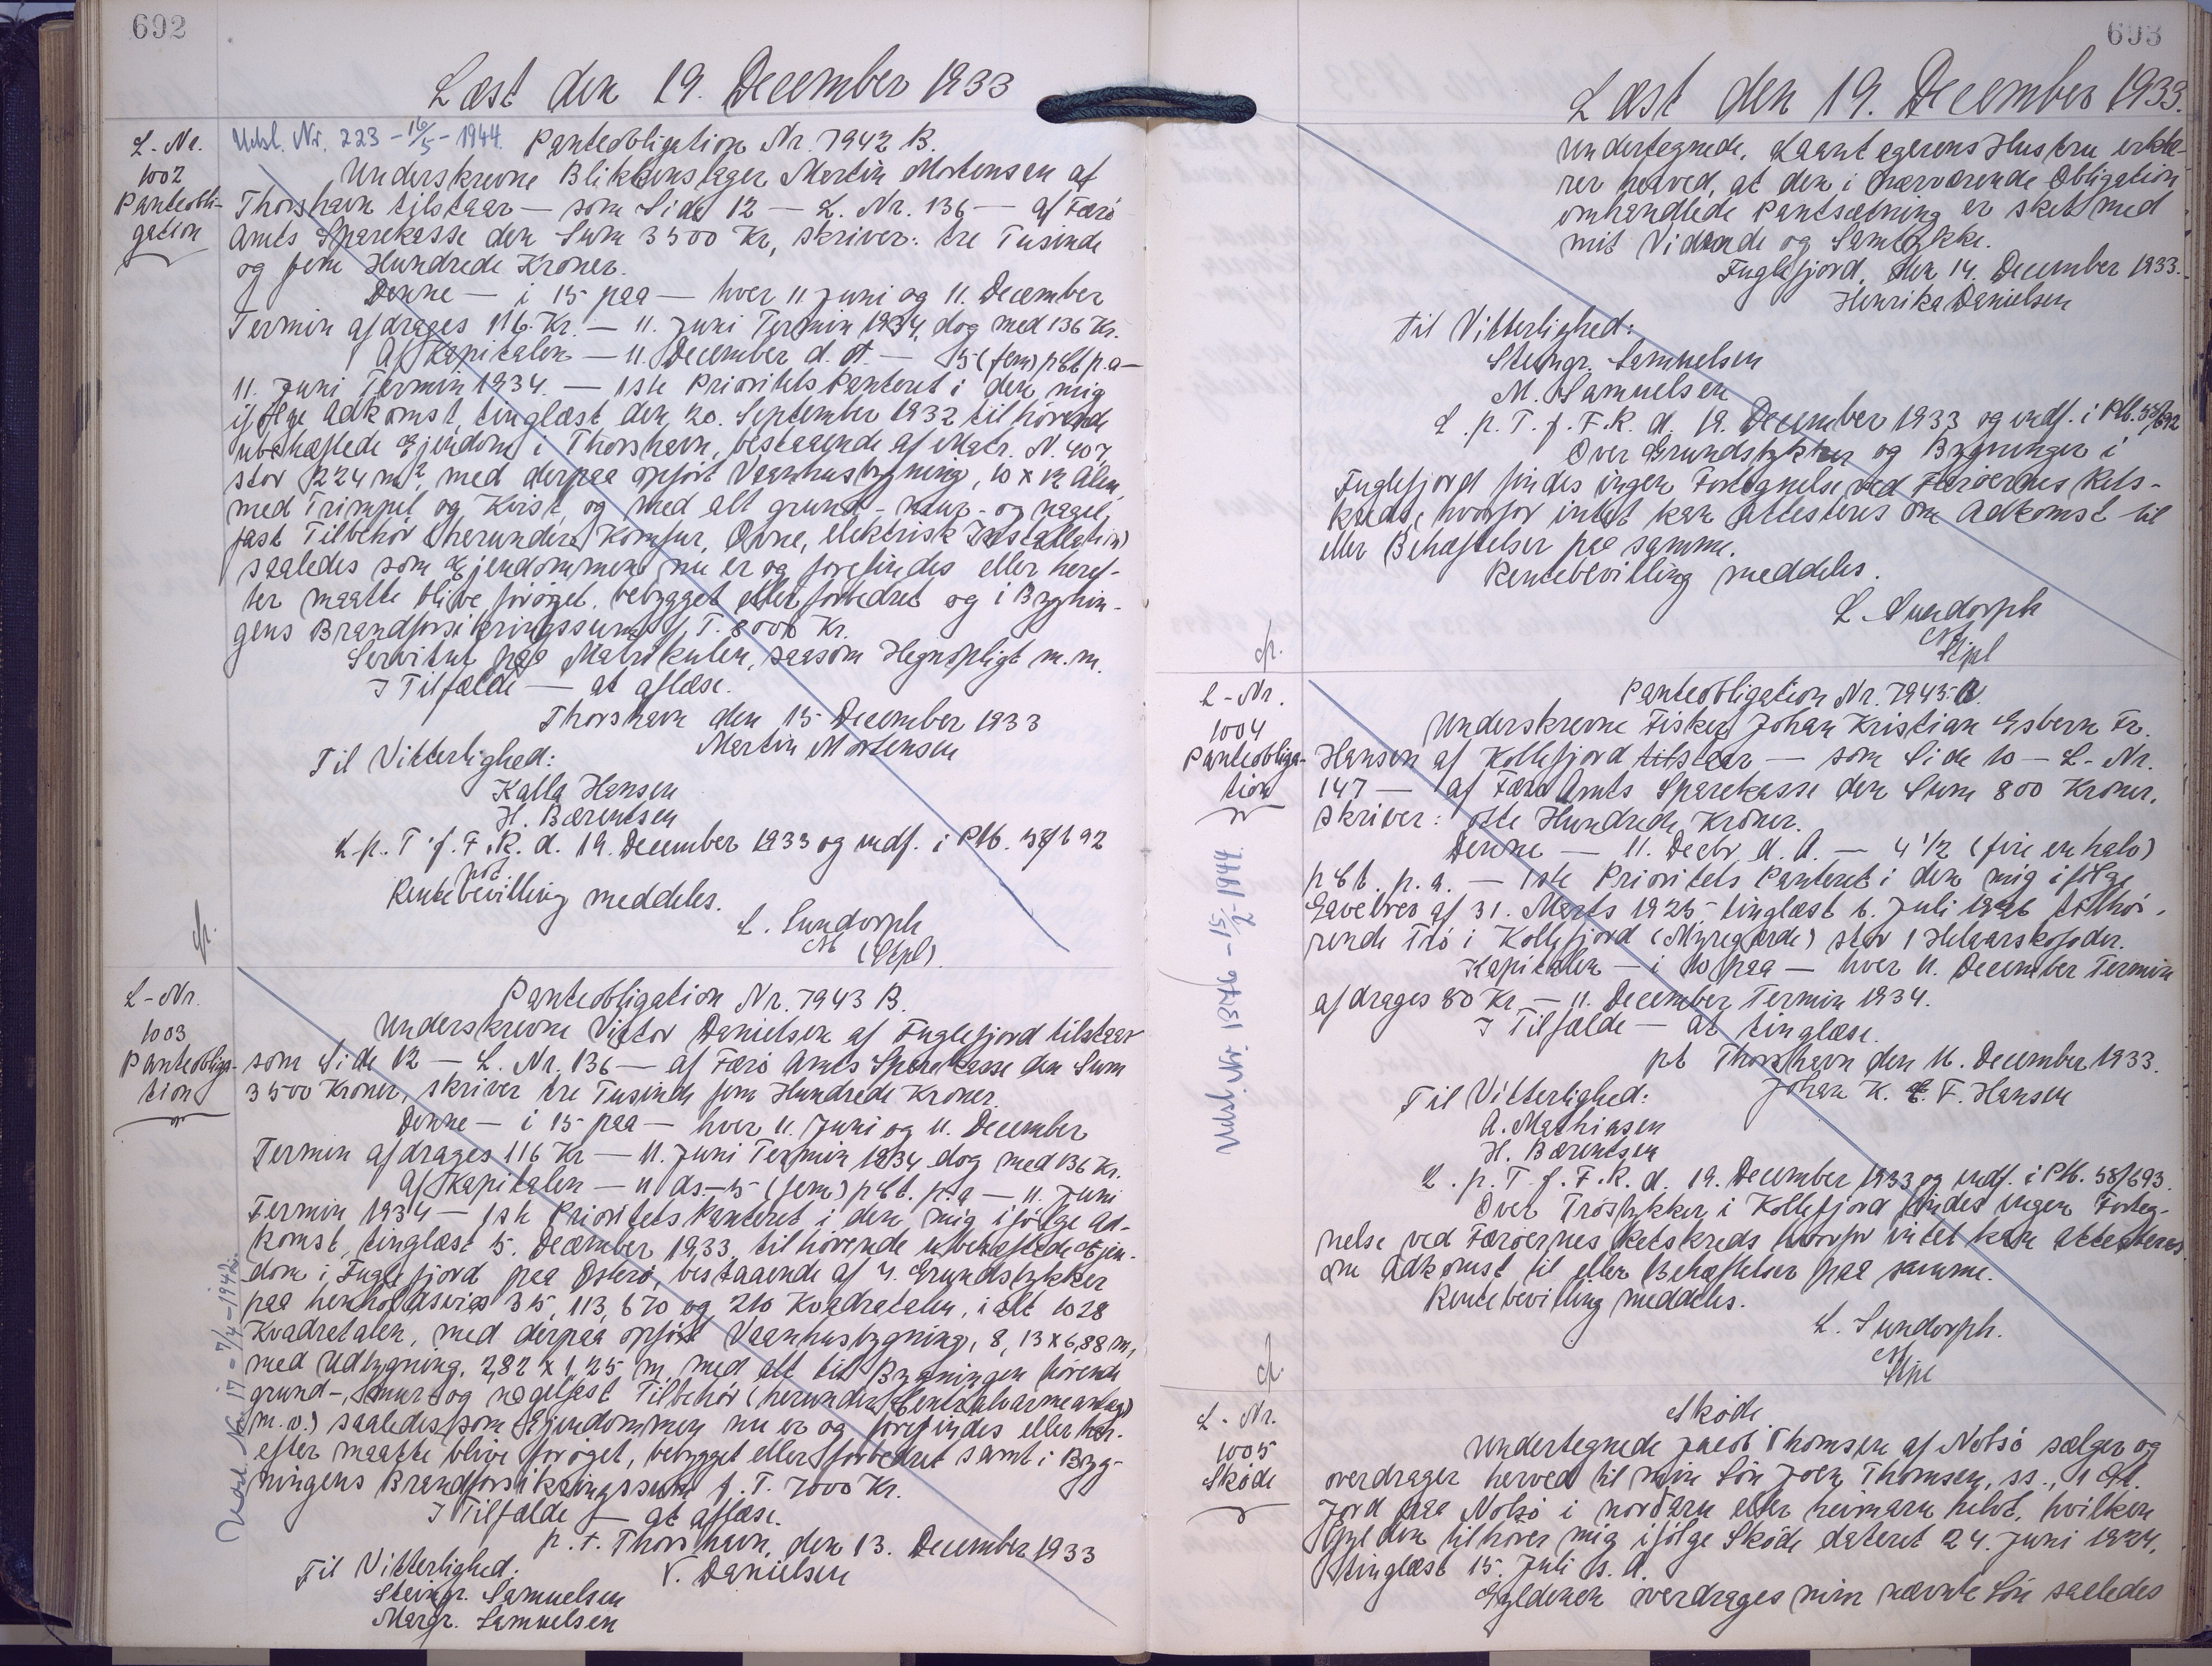 692
Læst den 19. December 1933
L-Nr.
1002
Panteobli-
gation
Udsl. Nr. 223 - 16/5 - 1944.
Panteobligation Nr. 7942 B.
Underskrevne Blikkenslager Martin Mortensen af
Thorshavn tilstaar — som Side 12 — L. Nr. 136 — af Færø
Amts Sparekasse den Sum 3500 Kr, skriver: tre Tusinde
og fem Hundrede Kroner.
Denne — i 15 paa — hver 11 Juni og 11. December
Termin afdrages 116 Kr. — 11. Juni Termin 1934, dog med 136 Kr.
Af Kapitalen — 11. December d. A — 5 (fem) pCt p.a —
11. Juni Termin 1934. — 1ste Prioritets Panteret i den mig
ifølge Adkomst, tinglæst den 20. September 1932 tilhørende
ubehæftede Ejendom i Thorshavn, bestaaende af Matr. N. 407,
stor 224 m², med derpaa opført Vaanhusbygning, 10 x 12 Alen,
med Trimpil og Kvist, og med alt grund- mur- og nagel-
fast Tilbehør (herunder Komfur, Ovne, elektrisk Installation)
saaledes som Ejendommen nu er og forefindes eller heref-
ter maatte blive forøget, bebygget eller forbedret og i Bygnin-
gens Brandforsikringssum f. T. 8000 Kr.
Servitut paa Matrikulen, saasom Hegnspligt m.m.
I Tilfælde — at aflæse.
Thorshavn den 15 December 1933
Martin Mortensen
Til Vitterlighed:
Kalla Hansen
H. Bærentsen
L. p. T. f. F. R. d. 19. December 1933 og indf. i Ptb. 58/692
Rentebevilling meddeles.
L. Sundorph
(Stpl)
L-Nr.
1003
Panteobliga-
tion
Udsl. Nr. 17 - 7/4 - 1942.
Panteobligation Nr. 7943 B.
Underskrevne Victor Danielsen af Fuglefjord tilstaar
som Side 12 — L. Nr. 136 — af Færø Amts Sparekasse den Sum
3500 Kroner, skriver tre Tusinde fem Hundrede Kroner.
Denne — i 15 paa — hver 11. Juni og 11. December
Termin afdrages 116 Kr — 11. Juni Termin 1934 dog med 136 Kr.
Af Kapitalen — 11 ds. — 5 (fem) pCt. p.a — 11. Juni
Termin 1934 — 1ste Prioritets Panteret i den mig ifølge Ad-
komst, tinglæst 5. December 1933, tilhørende ubehæftede Ejen-
dom i Fuglefjord paa Østerø, bestaaende af 4. Grundstykker
paa henholdsvis 35, 113, 670 og 210 Kvadratalen, i alt 1028
Kvadratalen, med derpaa opført Vaanhusbygning, 8,13 x 6,88 m,
med Udbygning, 2,82 x 1,25 m, med alt til Bygningen hørende
grund-, mur- og nagelfast Tilbehør (herunder Centralvarmeanlæg
m.v.) saaledes som Ejendommen nu er og forefindes eller her-
efter maatte blive forøget, bebygget eller forbedret samt i Byg-
ningens Brandforsikringssum f. T. 7000 Kr.
I Tilfælde — at aflæse.
p. t. Thorshavn, den 13. December 1933
V. Danielsen
Til Vitterlighed:
Steingr. Samuelsen
Margr. Samuelsen
693
Læst den 19. December 1933.
Undertegnede, Laantagerens Hustru erklæ-
rer herved, at den i nærværende Obligation
omhandlede Pantsætning er sket med
mit Vidende og Samtykke.
Fuglefjord, den 14. December 1933.
Henrika Danielsen
Til Vitterlighed:
Steingr. Samuelsen
M. Samuelsen
L. p. T. f. F. R. d. 19. December 1933 og indf. i Ptb. 58/692
Over Grundstykker og Bygninger i
Fuglefjord findes ingen Fortegnelse ved Færøernes Rets-
kreds, hvorfor intet kan attesteres om Adkomst til
eller Behæftelser paa samme.
Rentebevilling meddeles.
L. Sundorph
Stpl
L-Nr.
1004
Panteobliga-
tion
Udsl. Nr. 1376 - 15/2 - 1944.
Panteobligation Nr. 7945. A
Underskrevne Fisker Johan Kristian Esbern Fr.
Hansen af Kollefjord tilstaar — som Side 10 — L-Nr.
147 — af Færø Amts Sparekasse den Sum 800 Kroner,
skriver: otte Hundrede Kroner.
Denne — 11. Decbr. d. A. — 4 1/2 (fire en halv)
pCt. p. a. — 1ste Prioritets Panteret i den mig ifølge
Gavebrev af 31. Marts 1925, tinglæst 6. Juli 1926 tilhø-
rende Trø i Kollefjord (Myregærde) stor 1 Helaarskofoder.
Kapitalen — i 10 paa — hver 11. December Termin
afdrages 80 Kr. — 11. December Termin 1934.
I Tilfælde — at tinglæse.
pt Thorshavn den 16. December 1933.
Johan K. E. F. Hansen
Til Vitterlighed:
A. Mathiasen
H. Bærentsen
L. p. T. f. F. R. d. 19. December 1933 og indf. i Ptb. 58/693.
Over Trøstykker i Kollefjord findes ingen Forteg-
nelse ved Færøernes Retskreds hvorfor intet kan attesteres
om Adkomst til eller Behæftelser paa samme.
Rentebevilling meddeles.
L. Sundorph.
Stpl
L-Nr.
1005
Skøde
Skøde
Undertegnede Jacob Thomsen af Nolsø sælger og
overdrager herved til min Søn Joen Thomsen, ss., 1 Gl.
Jord paa Nolsø i norðaru eller heimaru helvt, hvilken
Gylden tilhører mig ifølge Skøde dateret 24. Juni 1924,
tinglæst 15. Juli s. A.
Gyldenen overdrages min nævnte Søn saaledes